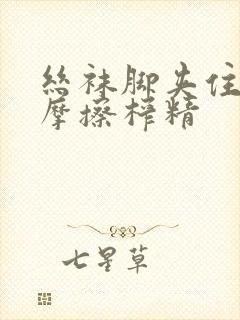 丝袜脚夹住
摩擦榨精
七星草